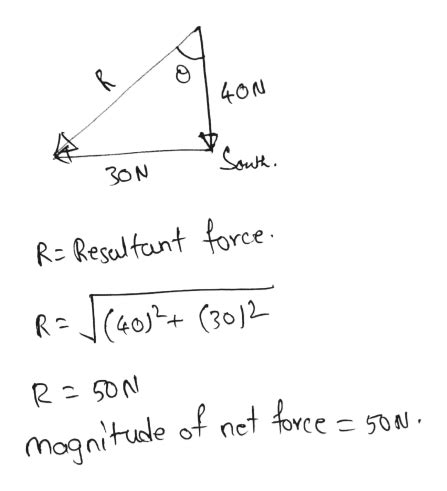 R
θ
40N
30N
South.
R = Resultant force.
R = √(40)² + (30)²
R = 50N
magnitude of net force = 50N.